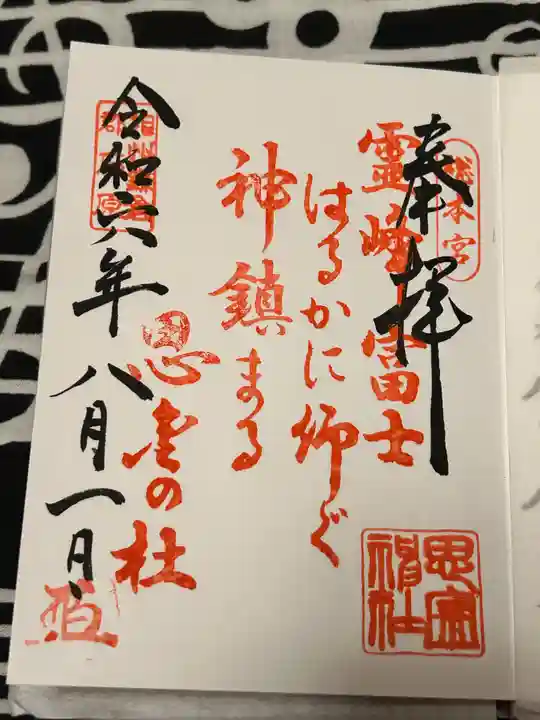 奉拝
総本宮
霊峰富士
はるかに仰ぐ
神鎮まる
思金の杜
令和六年八月一日
思金神社